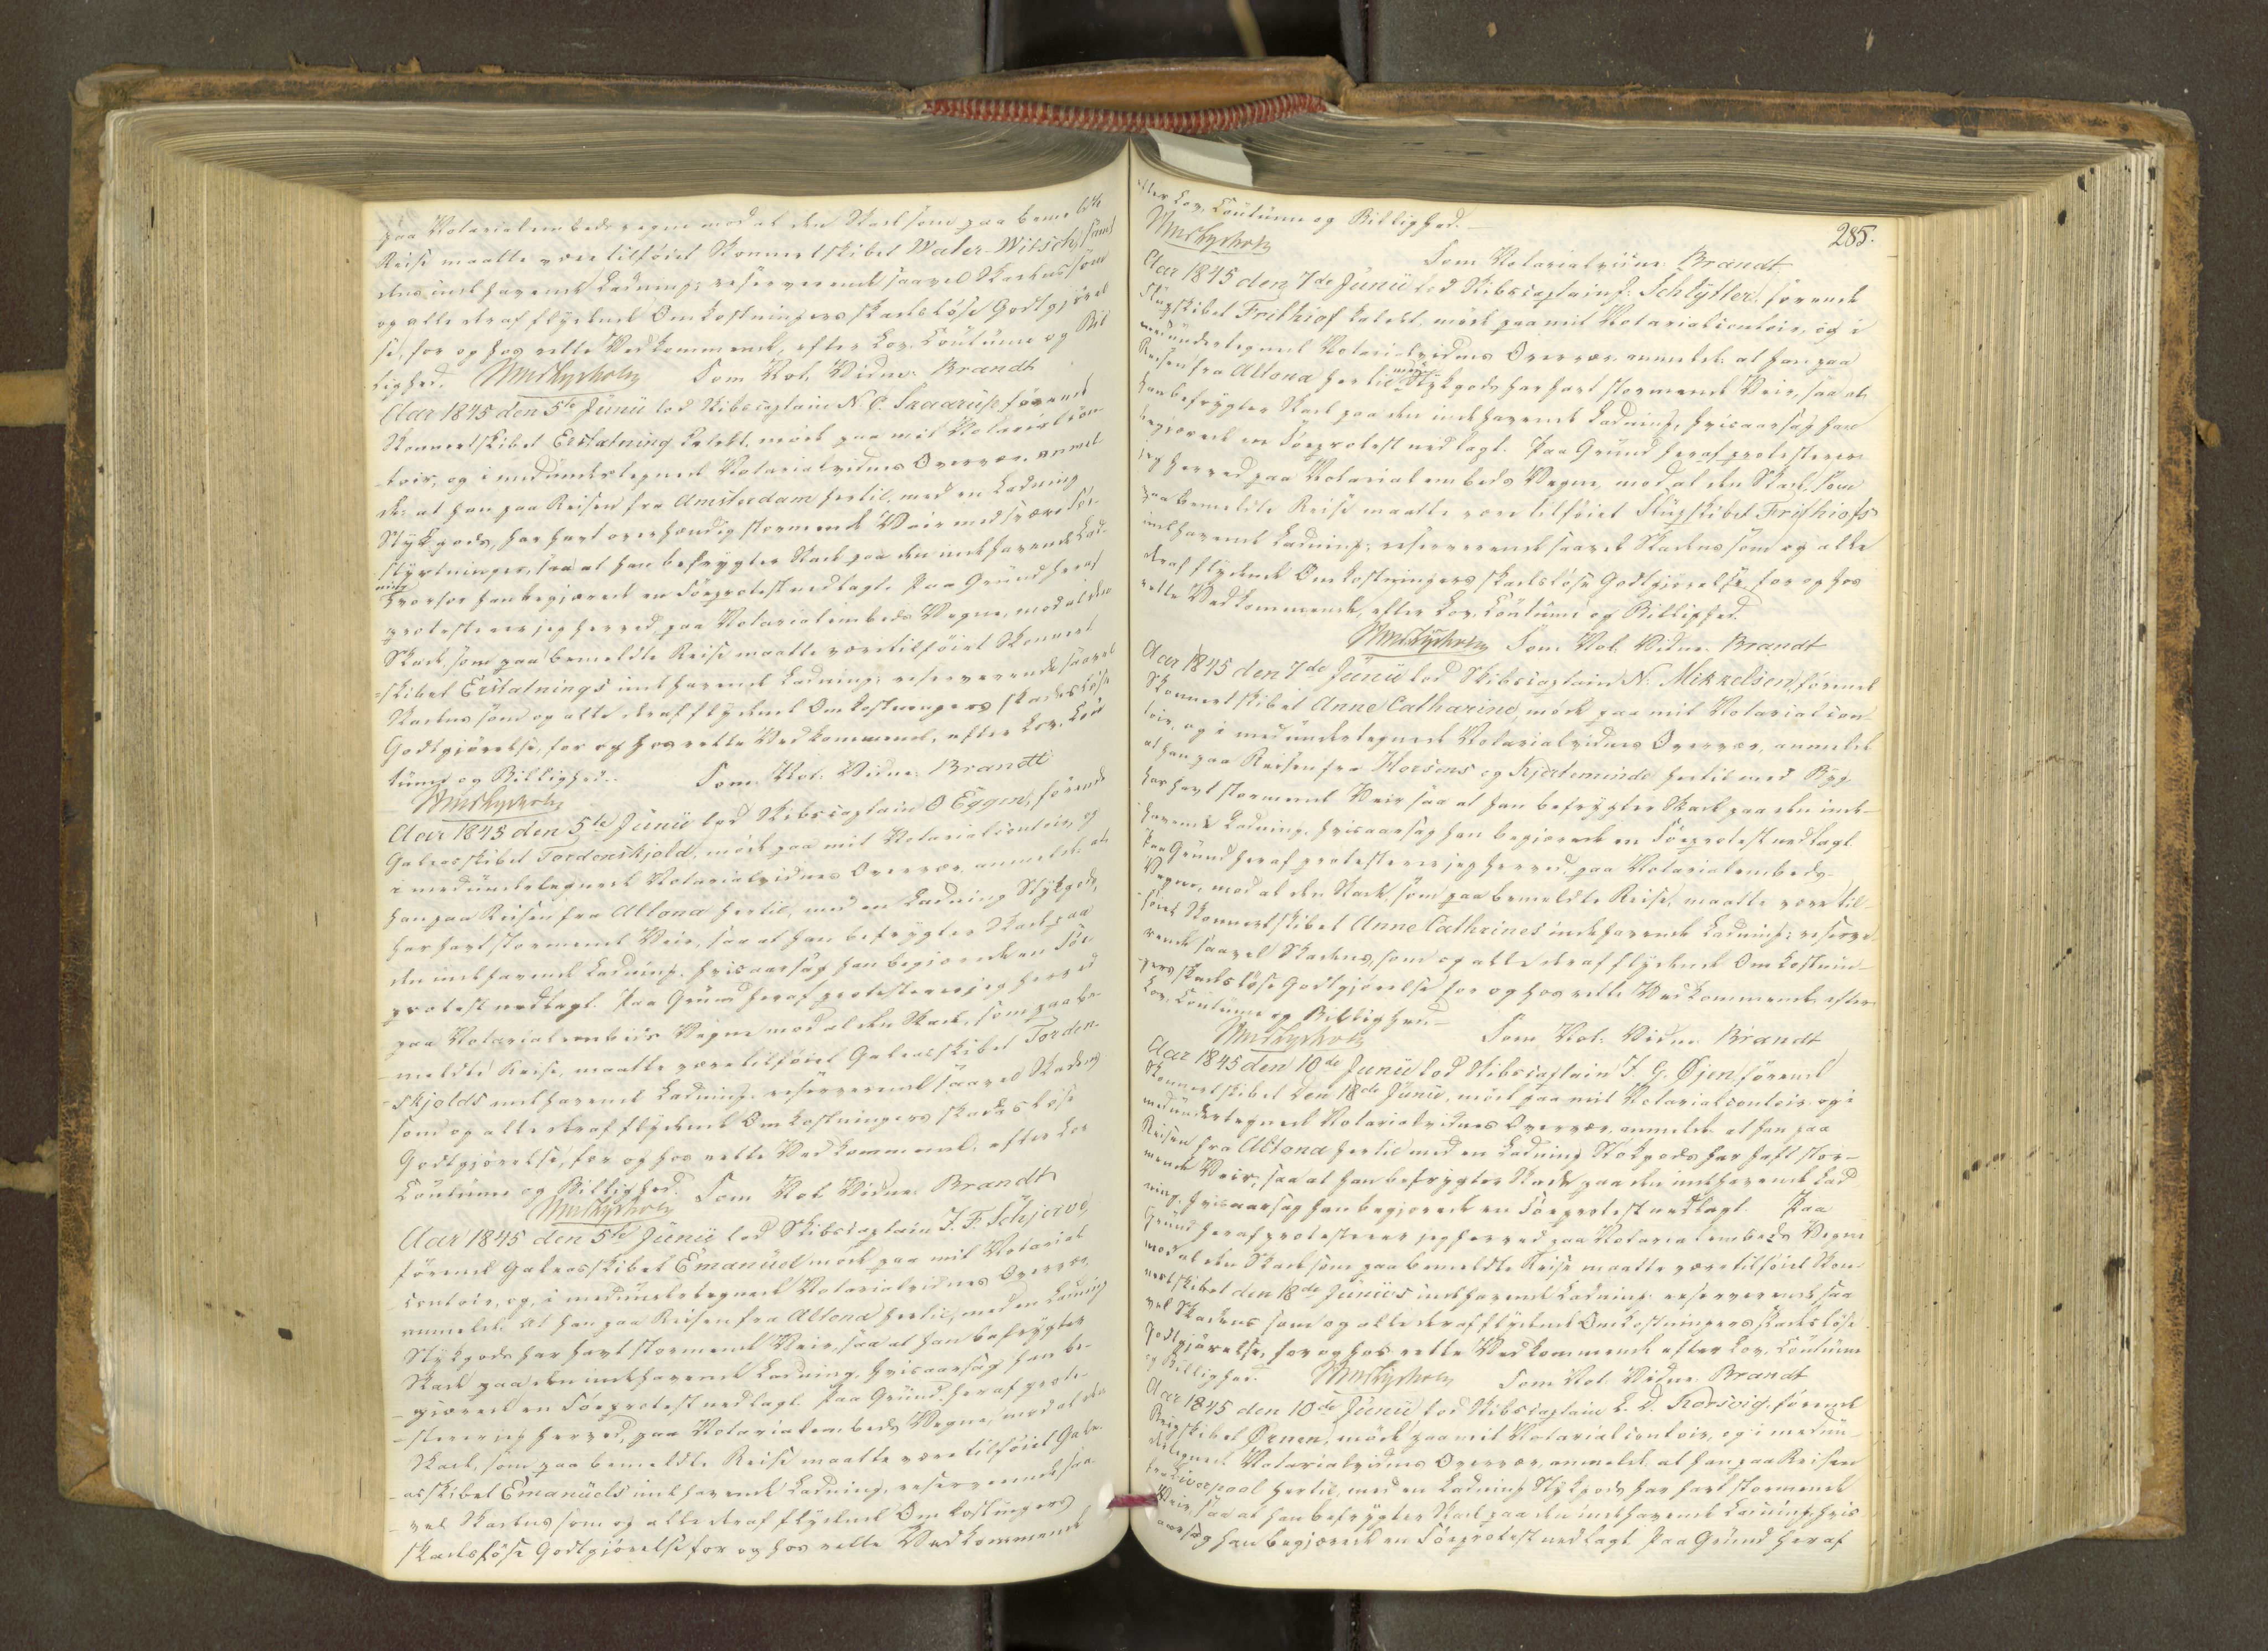 paa Notarialembeds vegne mod at den Skade som paa bemeldte
Reise maatte være tilföiet Skonnertskibet Water-Witsch, samt
dens indehavende Ladning; reserverende saavel Skadens som
og alle deraf flydende Omkostningers skadeslöse Godtgjörel
se, for og hos rette Vedkommende, efter Lov, Coutume og Bil
lighed. Som Not. Vidne: Brandt
Aar 1845 den 5te Junii lod Skibscaptain N. C. Skaarup, förende
Skonnertskibet Erstatning kaldet, möde paa mit Notarialcon-
toir, og i medundertegnede Notarialvidnes Overvær anmel
de: at han paa Reisen fra Amsterdam hertil, med en Ladning
Stykgods, har havt overhændig stormende Veir med svære Sö-
styrtninger, saa at han befrygter Skade paa den indehavende Lad-
ning
hvorfor han begjærede en Söeprotest nedlagt. Paa Grund heraf
protesterer jeg herved, paa Notarialembeds Vegne, mod at den
Skade, som paa bemeldte Reise maatte være tilföiet Skonnert
-skibet Erstatnings indehavende Ladning; reserverende saavel
Skadens som og alle deraf flydende Omkostningers skadeslöse
Godtgjörelse, for og hos rette Vedkommende, efter Lov, Cou
tume og Billighed. Som Not. Vidne: Brandt
Aar 1845 den 5te Junii lod Skibscaptain O Eggen, förende
Galeasskibet Tordenskjold, möde paa mit Notarialcontoir, og
i medundertegnede Notarialvidnes Overvær anmelde: at
han paa Reisen fra Altona hertil, med en Ladning Stykgods,
har havt stormende Veir, saa at han befrygter Skade paa
den indehavende Ladning, hvisaarsag han begjærede en Söe
protest nedlagt. Paa Grund heraf protesterer jeg herved
paa Notarialembeds Vegne mod at den Skade, som paa be-
meldte Reise, maatte være tilföiet Galeasskibet Torden-
-skjolds indehavende Ladning; reserverende saavel Skadens
som og alle deraf flydende Omkostningers skadeslöse
Godtgjörelse, for og hos rette Vedkommende, efter Lov
Coutume og Billighed. Som Not. Vidne: Brandt
Aar 1845 den 5te Junii lod Skibscaptain J. F. Schjave,
förende Galeasskibet Emanuel möde paa mit Notarial
contoir, og, i medundertegnede Notarialvidnes Overvær,
anmelde: at han paa Reisen fra Altona hertil, med en Ladning
Stykgods har havt stormende Veir, saa at han befrygter
Skade paa den indehavende Ladning, hvisaarsag han be-
-gjærede en Söeprotest nedlagt. Paa Grund heraf prote-
-sterer jeg herved, paa Notarialembeds Vegne, mod at den
Skade, som paa bemeldte Reise maatte være tilföiet Gale-
-asskibet Emanuels indehavende Ladning, reserverende saa-
-vel Skadens som og alle deraf flydende Omkostningers
skadeslöse Godtgjörelse for og hos rette Vedkommende
285.
efter Lov, Coutume og Billighed.-
Som Notarialvidne: Brandt
Aar 1845 den 7de Junii lod Skibscaptain J. Schlytter, förende
Slupskibet Frithiof kaldet, möde paa mit Notarialcontoir, og i
medundertegnede Notarialvidnes Overvær, anmelde: at han paa
Reisen fra Altona hertil med Stykgods har havt stormende Veir, saa at
han befrygter Skade paa den indehavende Ladning, hvisaarsag han
begjærede en Söeprotest nedlagt. Paa Grund heraf protesterer
jeg herved paa Notarialembeds Vegne, mod at den Skade, som
paa bemeldte Reise maatte være tilföiet Slupskibet Frithiofs
indehavende Ladning; reserverende saavel Skadens som og alle
deraf flydende Omkostningers skadeslöse Godtgjörelse, for og hos
rette Vedkommende, efter Lov, Coutume og Billighed.
Som Not. Vidne: Brandt
Aar 1845 den 7de Junii lod Skibscaptain N. Mikkelsen, förende
Skonnertskibet Anne Catharine, möde paa mit Notarialcon-
toir, og i medundertegnede Notarialvidnes Overvær, anmelde
at han paa Reisen fra Horsens og Kjerteminde hertil med Byg
har havt stormende Veir saa at han befrygter Skade paa den inde-
havende Ladning, hvisaarsag han begjærede en Söeprotest nedlagt
Paa Grund heraf protesterer jeg herved, paa Notarialembeds-
Vegne, mod at den Skade, som paa bemeldte Reise, maatte være til-
föiet Skonnertskibet Anne Cathrines indehavende Ladning; reserve-
rende saavel Skadens, som og alle deraf flydende Omkostnin-
gers skadeslöse Godtgjörelse for og hos rette Vedkommende efter
Lov, Coutume og Billighed- Som Not. Vidne: Brandt
Aar 1845 den 10de Junii lod Skibscaptain J. G. Øjen, förende
Skonnertskibet Den 18de Junii, möde paa mit Notarialcontoir og i
medundertegnede Notarialvidnes Overvær, anmelde at han paa
Reisen fra Altona hertil med en Ladning Stykgods har haft stor-
mende Veir, saa at han befrygter Skade paa den indehavende Lad
ning, hvisaarsag han begjærede en Söeprotest nedlagt. Paa
Grund heraf protesterer jeg herved paa Notarialembeds Vegne
mod at den Skade som paa bemeldte Reise maatte være tilföiet Skon-
nertskibet den 18de Junii's indehavende Ladning: reserverende saa
vel Skadens som og alle deraf flydende Omkostningers skadeslöse
Godtgjörelse, for og hos rette Vedkommende efter Lov, Coutume
og Billighed. Som Not. Vidne: Brandt
Aar 1845 den 10de Junii lod Skibscaptain L. D. Korsvig, förende
Brigskibet Ørnen, möde paa mit Notarialcontoir, og i medun-
dertegnede Notarialvidnes Overvær, anmelde at han paa Reisen
fra Liverpool hertil, med en Ladning Stykgods har havt stormende
Veir, saa at han befrygter Skade paa den indehavende Ladning, hvis
aarsag han begjærede en Söeprotest nedlagt Paa Grund heraf